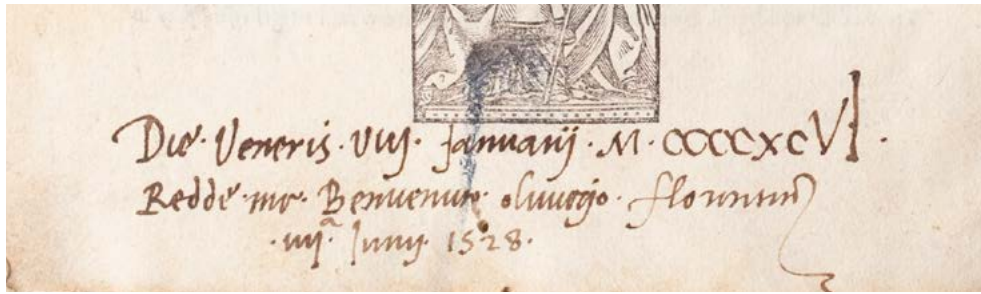 Die· Veneris· Viij· Januarij· M· CCCCXCVI·
Redde· mr· Benvenuto florentin
·iiijᵃ· Junij· 1528·